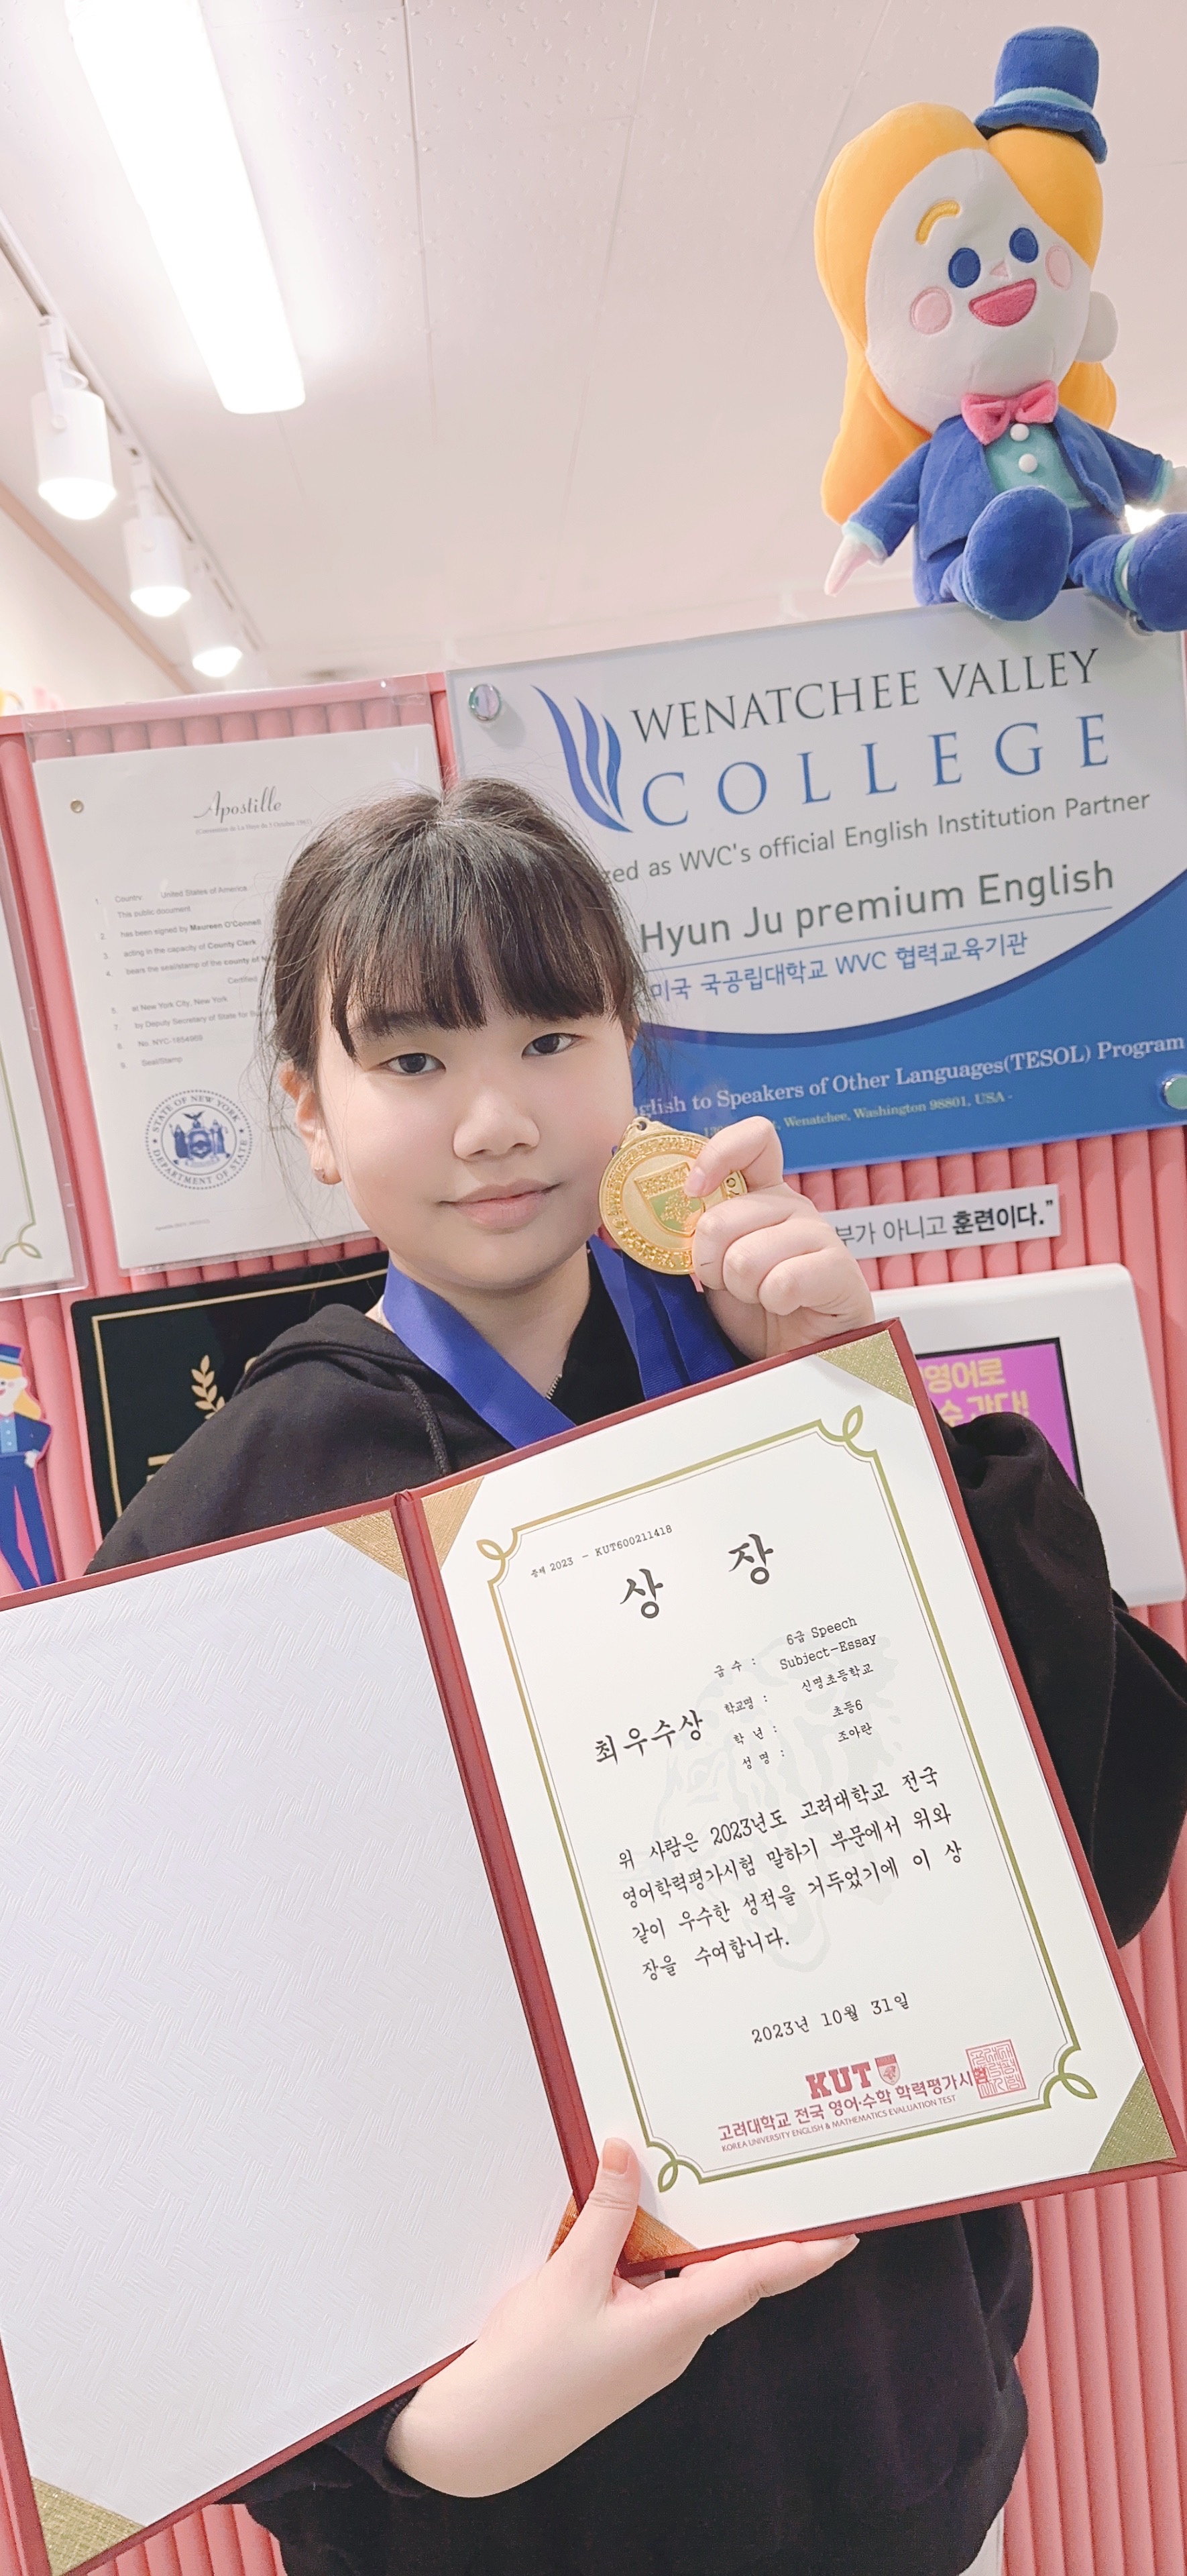 WENATCHEE VALLEY
COLLEGE
as WVC's official English Institution Partner
Hyun Ju premium English
미국 국공립대학교 WVC 협력교육기관
to Speakers of Other Languages(TESOL) Program
Wenatchee, Washington 98801, USA
Apostille
1. Country United States of America
This public document
2. has been signed by Maureen O'Connell
3. acting in the capacity of County Clerk
4. bears the seal/stamp of the county of
Certified
5. at New York City, New York
7. by Deputy Secretary of State for
8. No. NYC-1654969
9. Seal/Stamp
STATE OF NEW YORK
DEPARTMENT OF STATE
아니고 훈련이다."
영어로
증제 2023 - KUT600211418
상 장
급 수 : 6급 Speech
Subject-Essay
최우수상
학교명 : 신명초등학교
학 년 : 초등6
성 명 : 조아란
위 사람은 2023년도 고려대학교 전국
영어학력평가시험 말하기 부문에서 위와
같이 우수한 성적을 거두었기에 이 상
장을 수여합니다.
2023년 10월 31일
KUT
고려대학교 전국 영어·수학 학력평가시험
KOREA UNIVERSITY ENGLISH & MATHEMATICS EVALUATION TEST